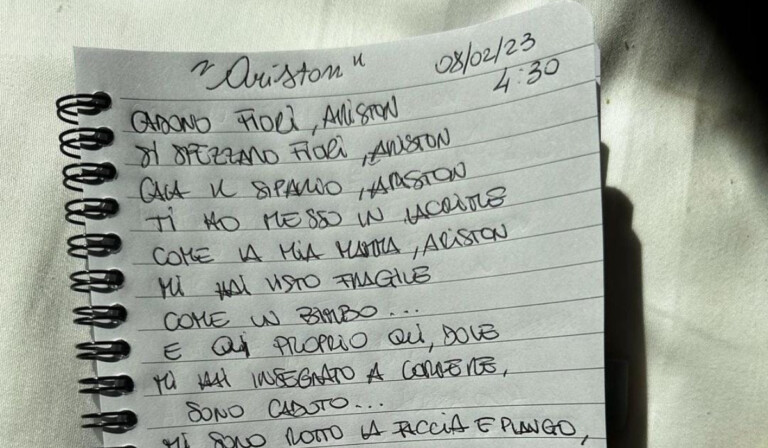 "Ariston"
08/02/23
4:30
CADONO FIORI, ARISTON
SI SPEZZANO FIORI, ARISTON
CALA IL SIPARIO, ARISTON
TI HO MESSO IN LACRIME
COME LA MIA MAMMA, ARISTON
MI HAI VISTO FRAGILE
COME UN BIMBO...
E QUI PROPRIO QUI, DOVE
MI HAI INSEGNATO A CORRERE,
SONO CADUTO...
MI SONO ROTTO LA FACCIA E PIANGO,